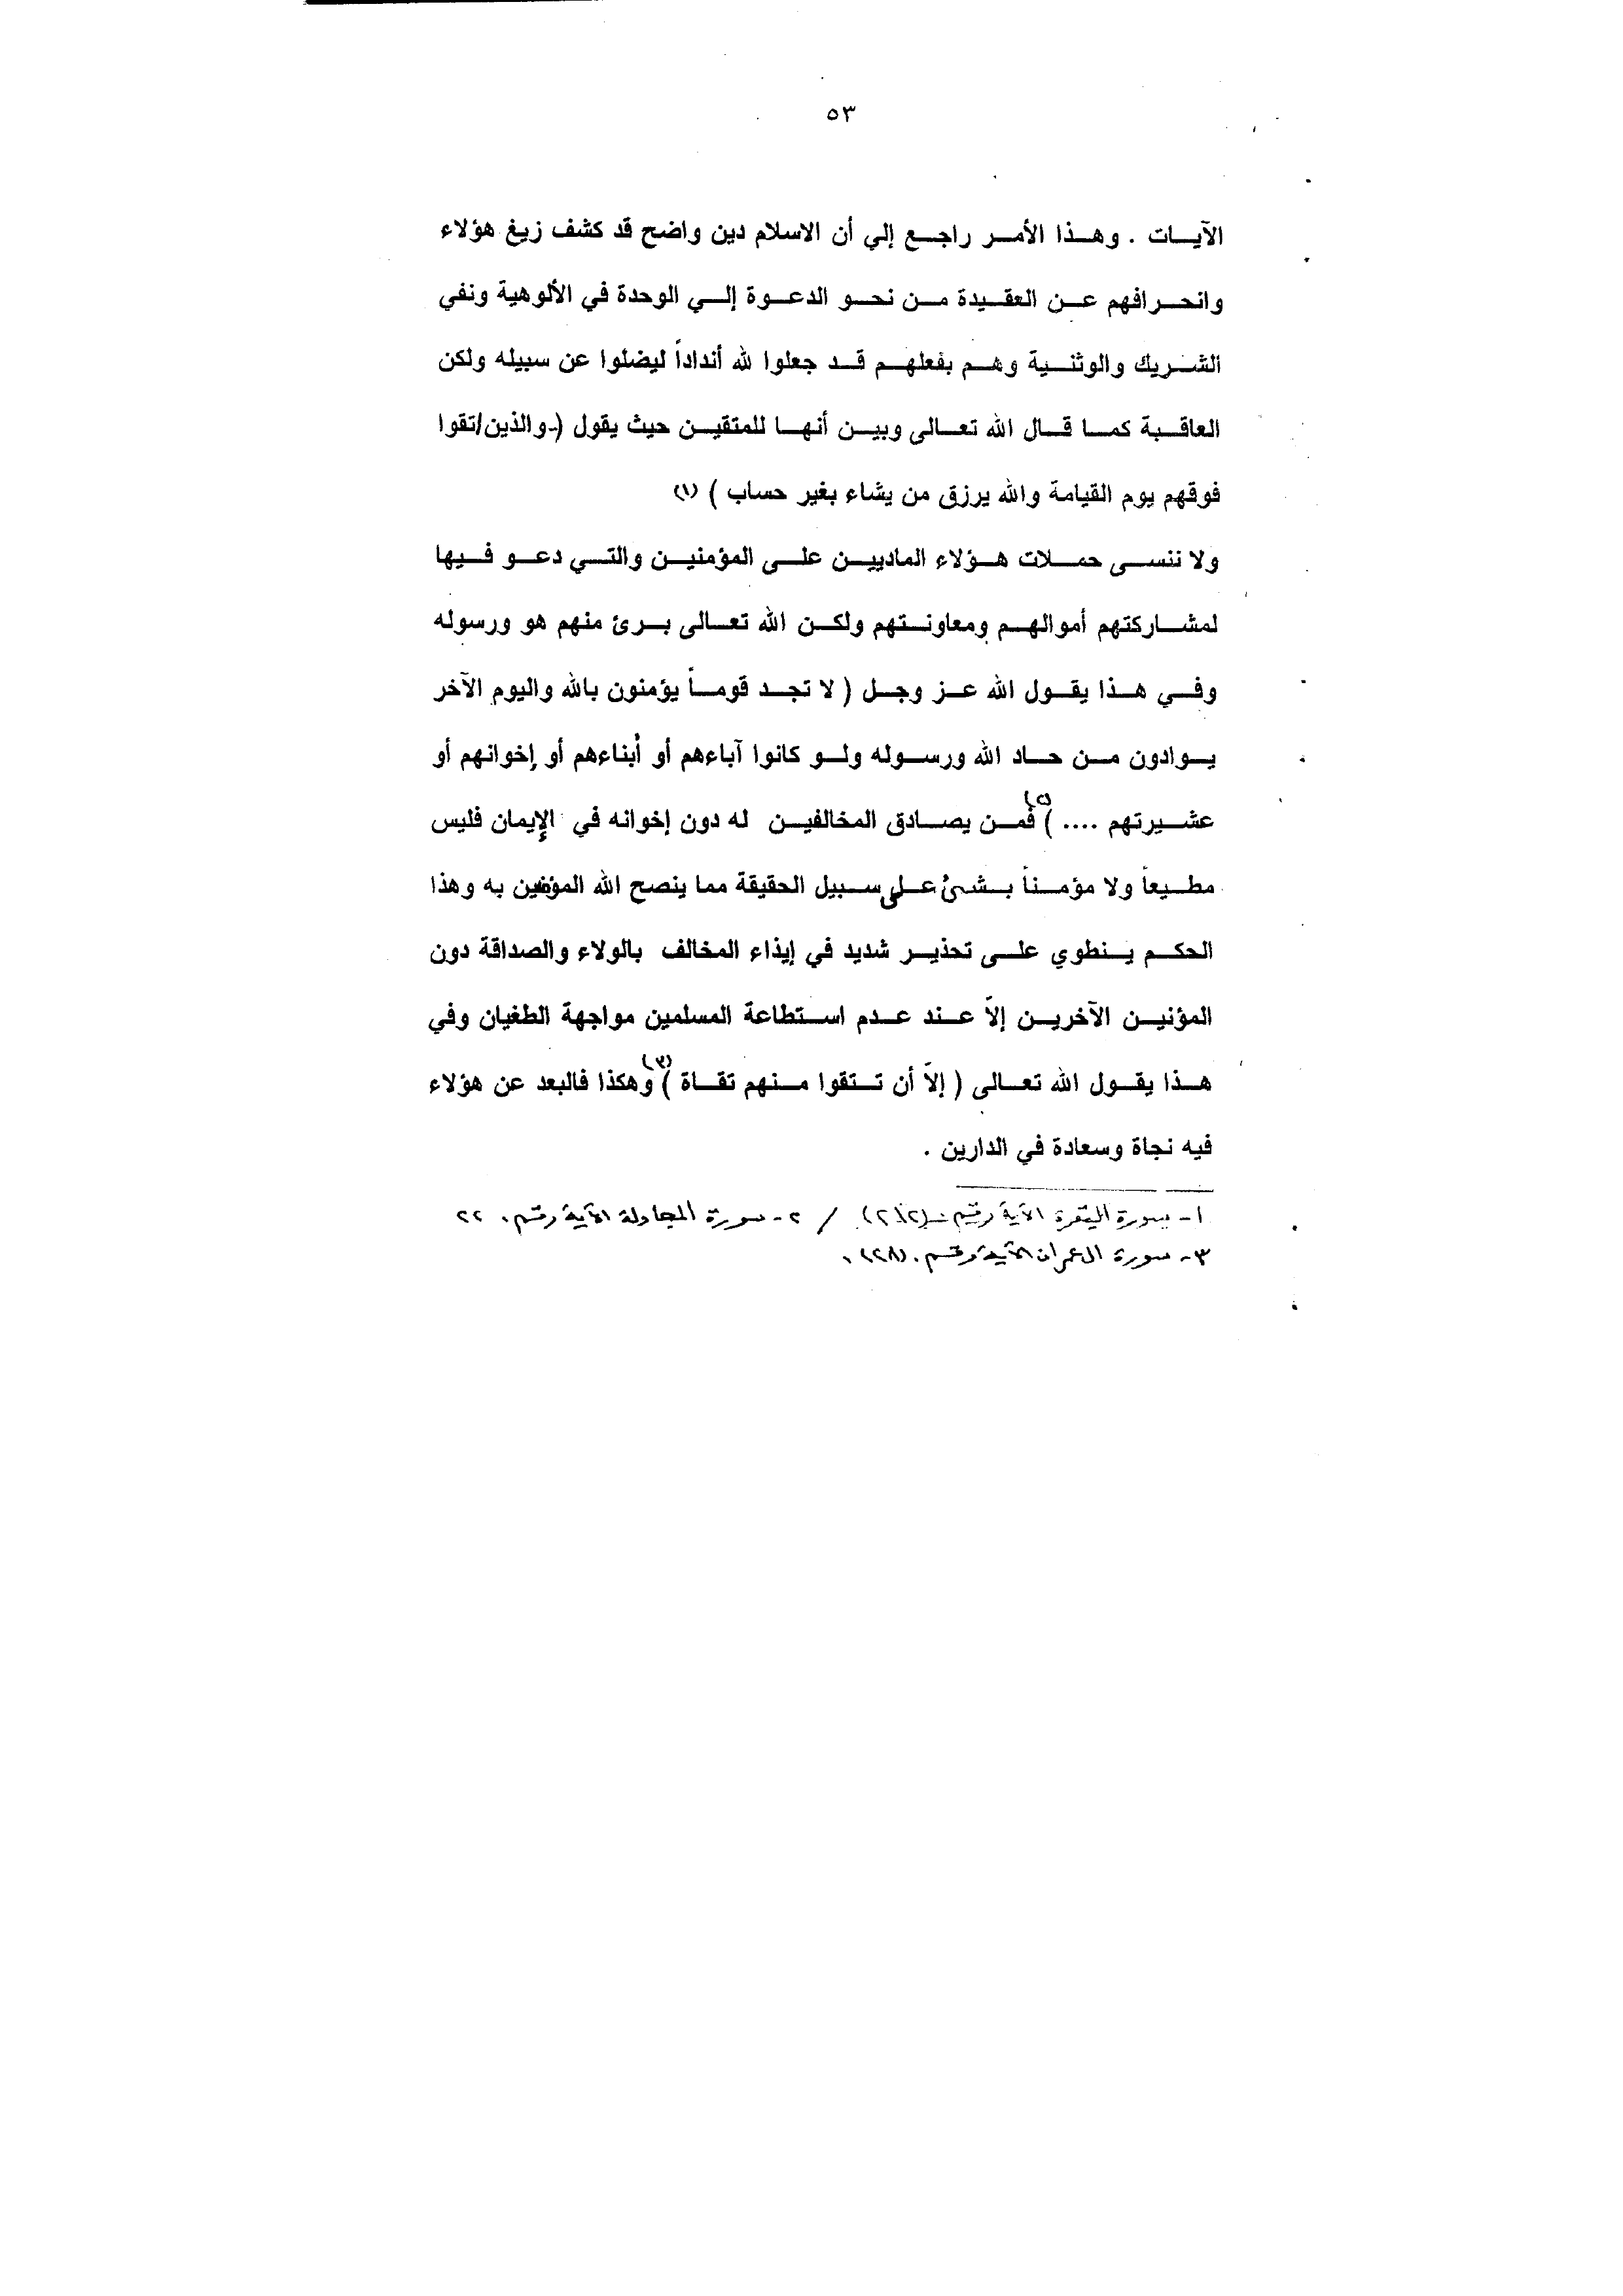 ٥٣
الآيات . وهذا الأمر راجع إلي أن الاسلام دين واضح قد كشف زيغ هؤلاء
وانحرافهم عن العقيدة من نحو الدعوة إلي الوحدة في الألوهية ونفي
الشريك والوثنية وهم بفعلهم قد جعلوا لله أنداداً ليضلوا عن سبيله ولكن
العاقبة كما قال الله تعالى وبين أنها للمتقين حيث يقول ( والذين اتقوا
فوقهم يوم القيامة والله يرزق من يشاء بغير حساب ) (١)
ولا ننسى حملات هؤلاء الماديين على المؤمنين والتي دعو فيها
لمشاركتهم أموالهم ومعاونتهم ولكن الله تعالى برئ منهم هو ورسوله
وفي هذا يقول الله عز وجل ( لا تجد قوماً يؤمنون بالله واليوم الآخر
يوادون من حاد الله ورسوله ولو كانوا آباءهم أو أبناءهم أو إخوانهم أو
عشيرتهم .... ) (٢) فمن يصادق المخالفين له دون إخوانه في الإيمان فليس
مطيعاً ولا مؤمناً بشئ على سبيل الحقيقة مما ينصح الله المؤمنين به وهذا
الحكم ينطوي على تحذير شديد في إيذاء المخالف بالولاء والصداقة دون
المؤنين الآخرين إلاّ عند عدم استطاعة المسلمين مواجهة الطغيان وفي
هذا يقول الله تعالى ( إلاّ أن تتقوا منهم تقاة ) (٣) وهكذا فالبعد عن هؤلاء
فيه نجاة وسعادة في الدارين .
١- سورة البقرة الآية رقم (٢١٢) / ٢- سورة المجادلة الآية رقم . ٢٢
٣- سورة ال عمران الآية رقم . (٢٨) .